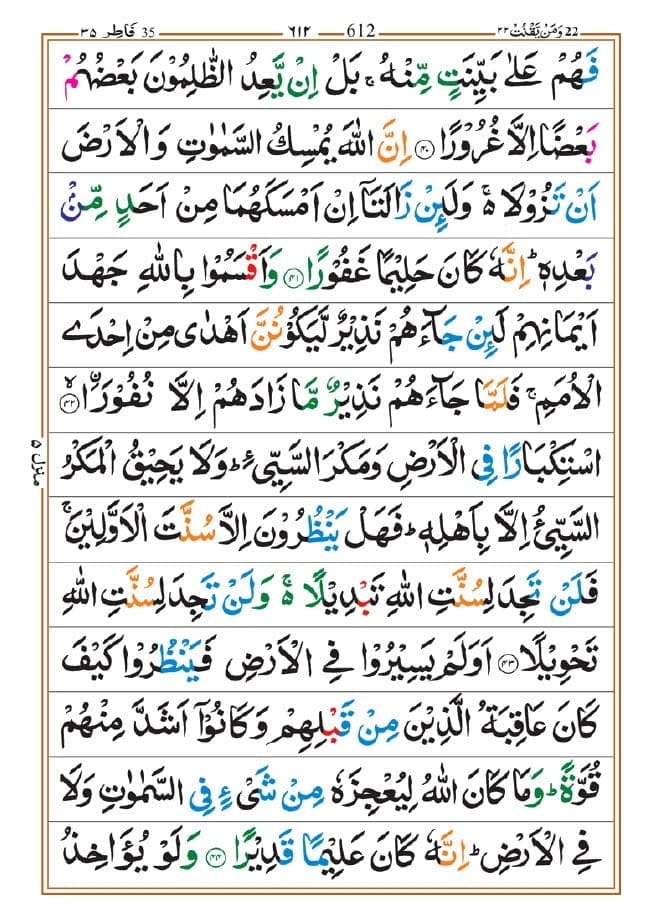 فَاطِر ٣٥ 35 ٦١٢ 612 وَمَنْ يَّقْنُتْ ٢٢ 22
فَهُمْ عَلٰى بَيِّنَتٍ مِّنْهُ ۚ بَلْ اِنْ يَّعِدُ الظّٰلِمُوْنَ بَعْضُهُمْ
بَعْضًا اِلَّا غُرُوْرًا ﴿۴۰﴾ اِنَّ اللّٰهَ يُمْسِكُ السَّمٰوٰتِ وَالْاَرْضَ
اَنْ تَزُوْلَا ەۚ وَلَئِنْ زَالَتَاۤ اِنْ اَمْسَكَهُمَا مِنْ اَحَدٍ مِّنْۢ
بَعْدِهٖ ؕ اِنَّهٗ كَانَ حَلِيْمًا غَفُوْرًا ﴿۴۱﴾ وَاَقْسَمُوْا بِاللّٰهِ جَهْدَ
اَيْمَانِهِمْ لَئِنْ جَآءَهُمْ نَذِيْرٌ لَّيَكُوْنُنَّ اَهْدٰى مِنْ اِحْدَى
الْاُمَمِ ۚ فَلَمَّا جَآءَهُمْ نَذِيْرٌ مَّا زَادَهُمْ اِلَّا نُفُوْرًا ۙ﴿۴۲﴾
اسْتِكْبَارًا فِى الْاَرْضِ وَمَكْرَ السَّيِّئِ ؕ وَلَا يَحِيْقُ الْمَكْرُ
السَّيِّئُ اِلَّا بِاَهْلِهٖ ؕ فَهَلْ يَنْظُرُوْنَ اِلَّا سُنَّتَ الْاَوَّلِيْنَ ۚ
فَلَنْ تَجِدَ لِسُنَّتِ اللّٰهِ تَبْدِيْلًا ەۚ وَلَنْ تَجِدَ لِسُنَّتِ اللّٰهِ
تَحْوِيْلًا ﴿۴۳﴾ اَوَلَمْ يَسِيْرُوْا فِى الْاَرْضِ فَيَنْظُرُوْا كَيْفَ
كَانَ عَاقِبَةُ الَّذِيْنَ مِنْ قَبْلِهِمْ وَكَانُوْۤا اَشَدَّ مِنْهُمْ
قُوَّةً ؕ وَمَا كَانَ اللّٰهُ لِيُعْجِزَهٗ مِنْ شَىْءٍ فِى السَّمٰوٰتِ وَلَا
فِى الْاَرْضِ ؕ اِنَّهٗ كَانَ عَلِيْمًا قَدِيْرًا ﴿۴۴﴾ وَلَوْ يُؤَاخِذُ
منزل ۵